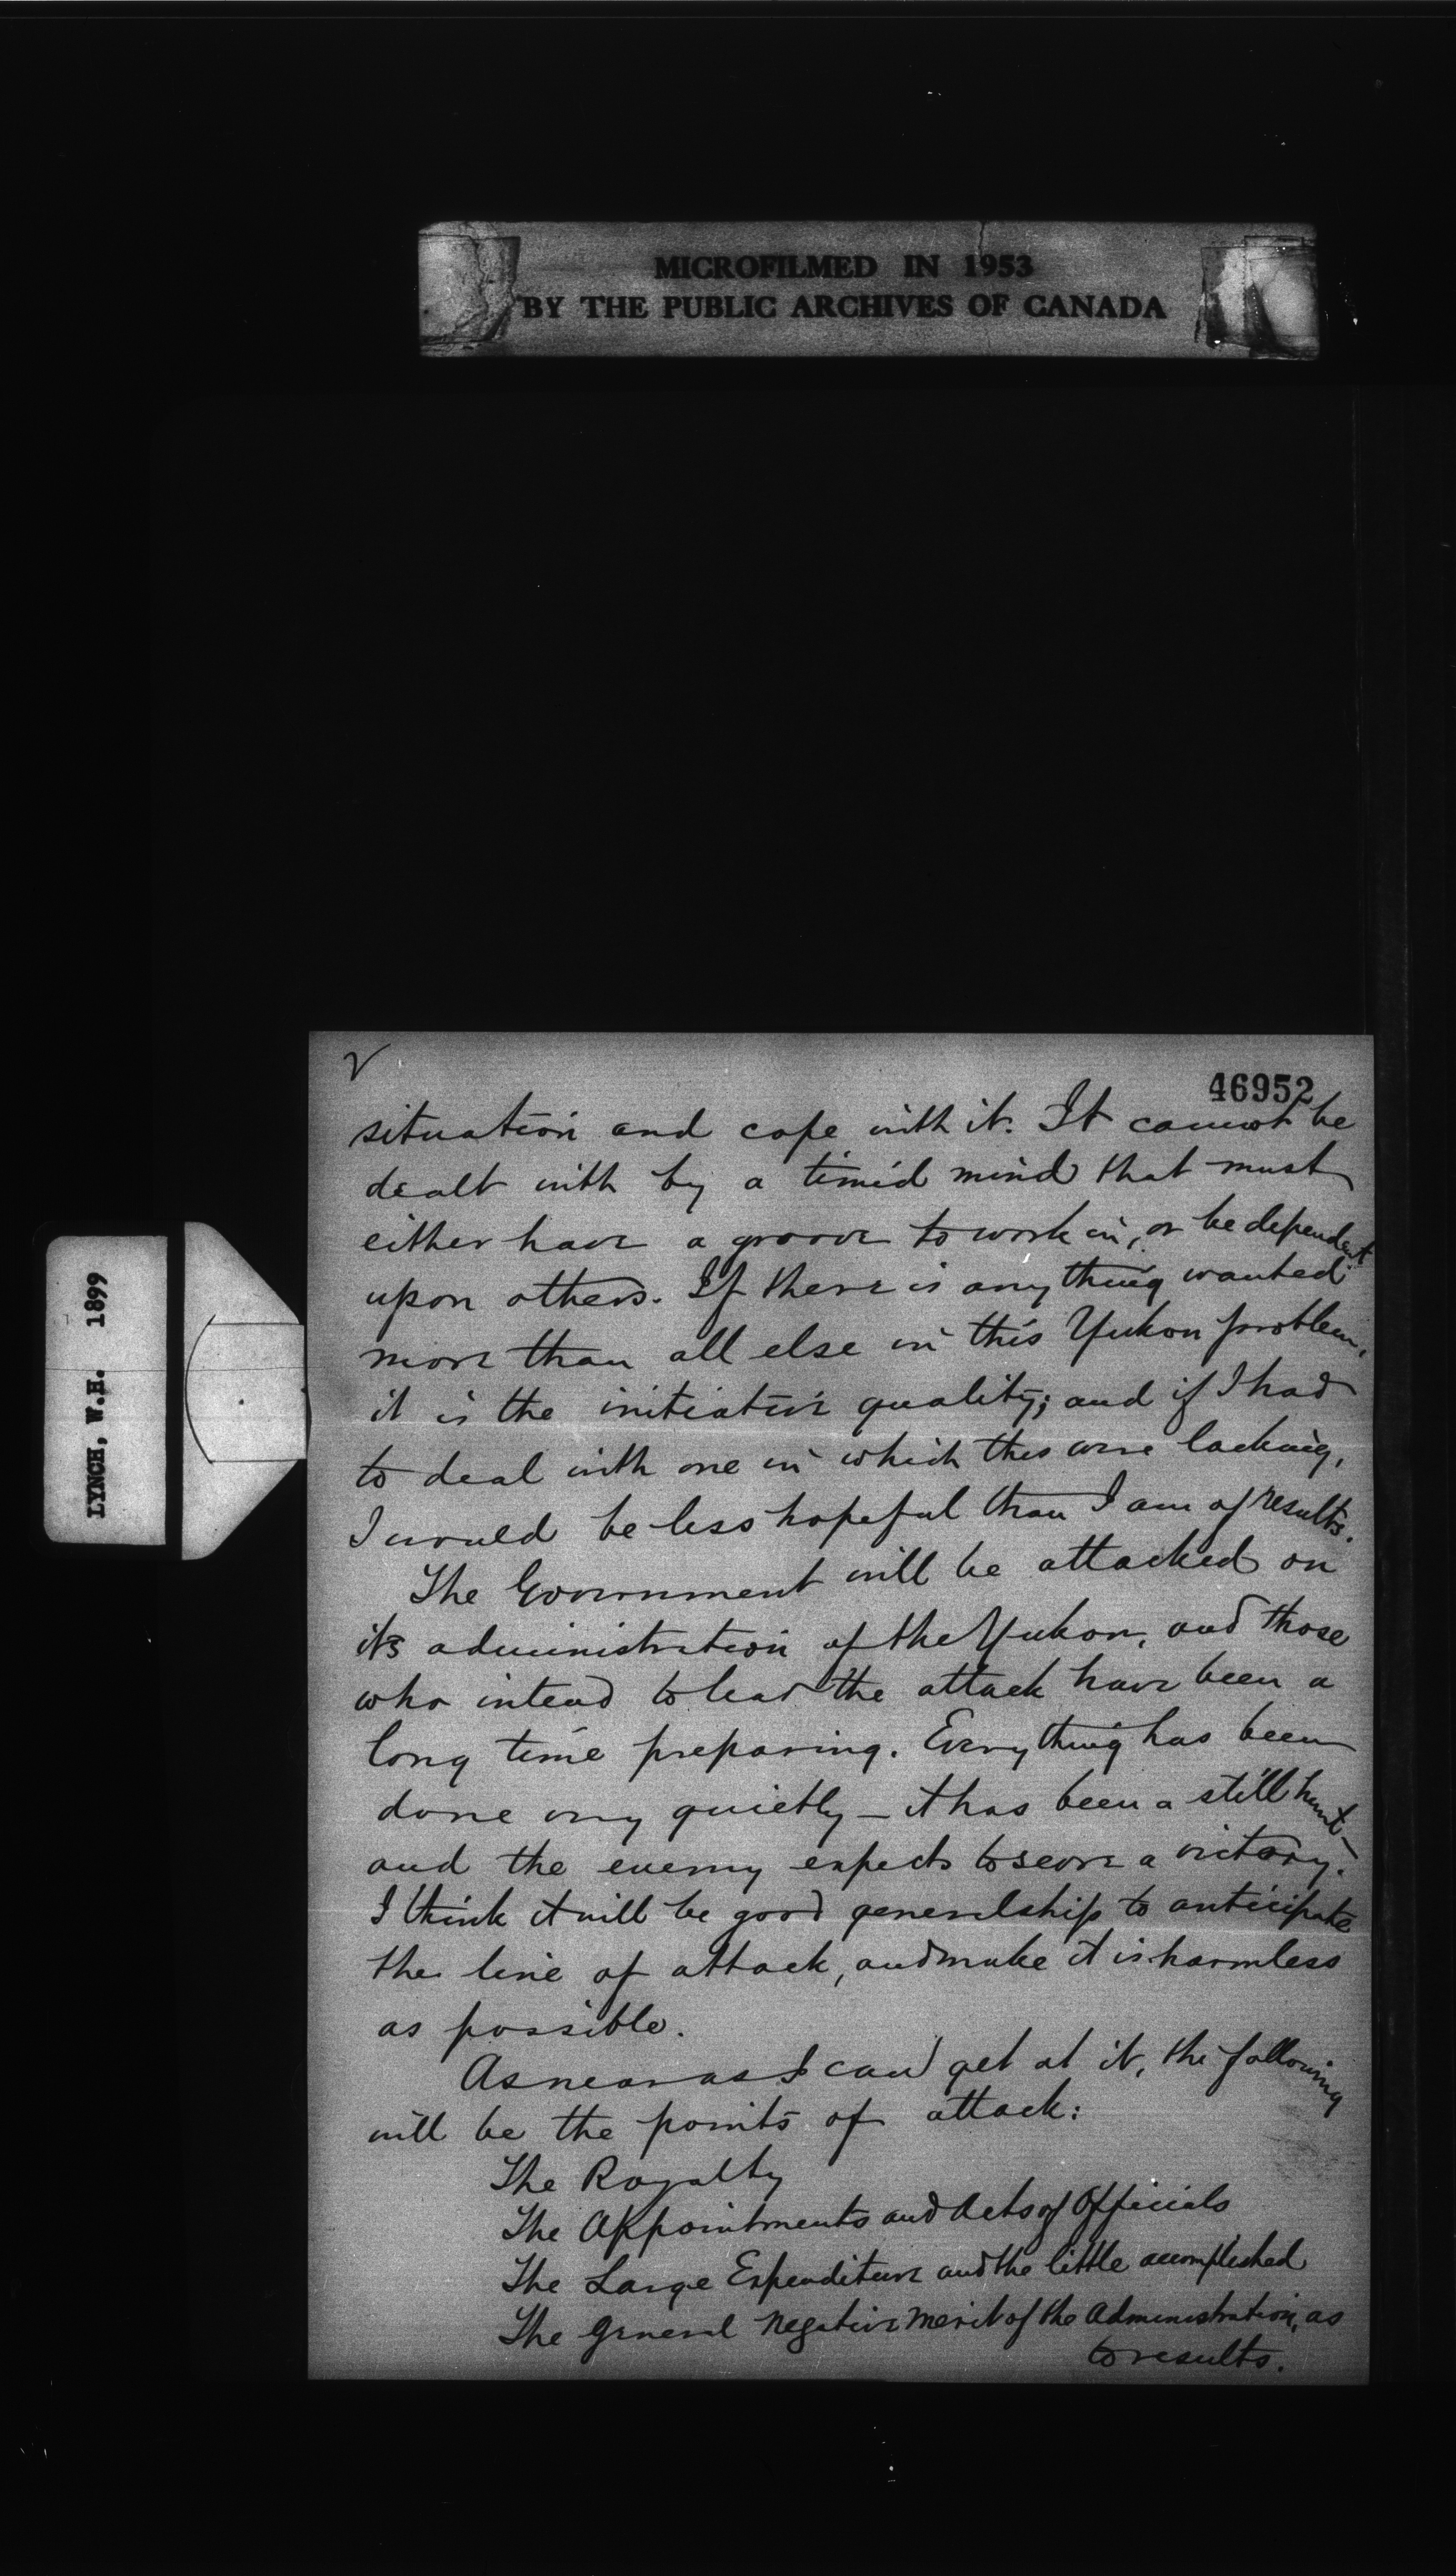 MICROFILMED IN 1953
BY THE PUBLIC ARCHIVES OF CANADA
LYNCH, W.H. 1899
46952
situation and cope with it. It cannot be
dealt with by a timid mind that must
either have a groove to work in, or be dependent
upon others. If there is any thing wanted
more than all else in this Yukon problem,
it is the initiative quality; and if I had
to deal with one in which this were lacking,
I would be less hopeful than I am of results.
The Government will be attacked on
its administration of the Yukon, and those
who intend to lead the attack have been a
long time preparing. Every thing has been
done very quietly — it has been a still hunt —
and the enemy expects to score a victory.
I think it will be good generalship to anticipate
the line of attack, and make it is harmless
as possible.
As near as I can get at it, the following
will be the points of attack:
The Royalty
The Appointments and Acts of Officials
The Large Expenditure and the little accomplished
The General Negative Merit of the Administration, as
to results.